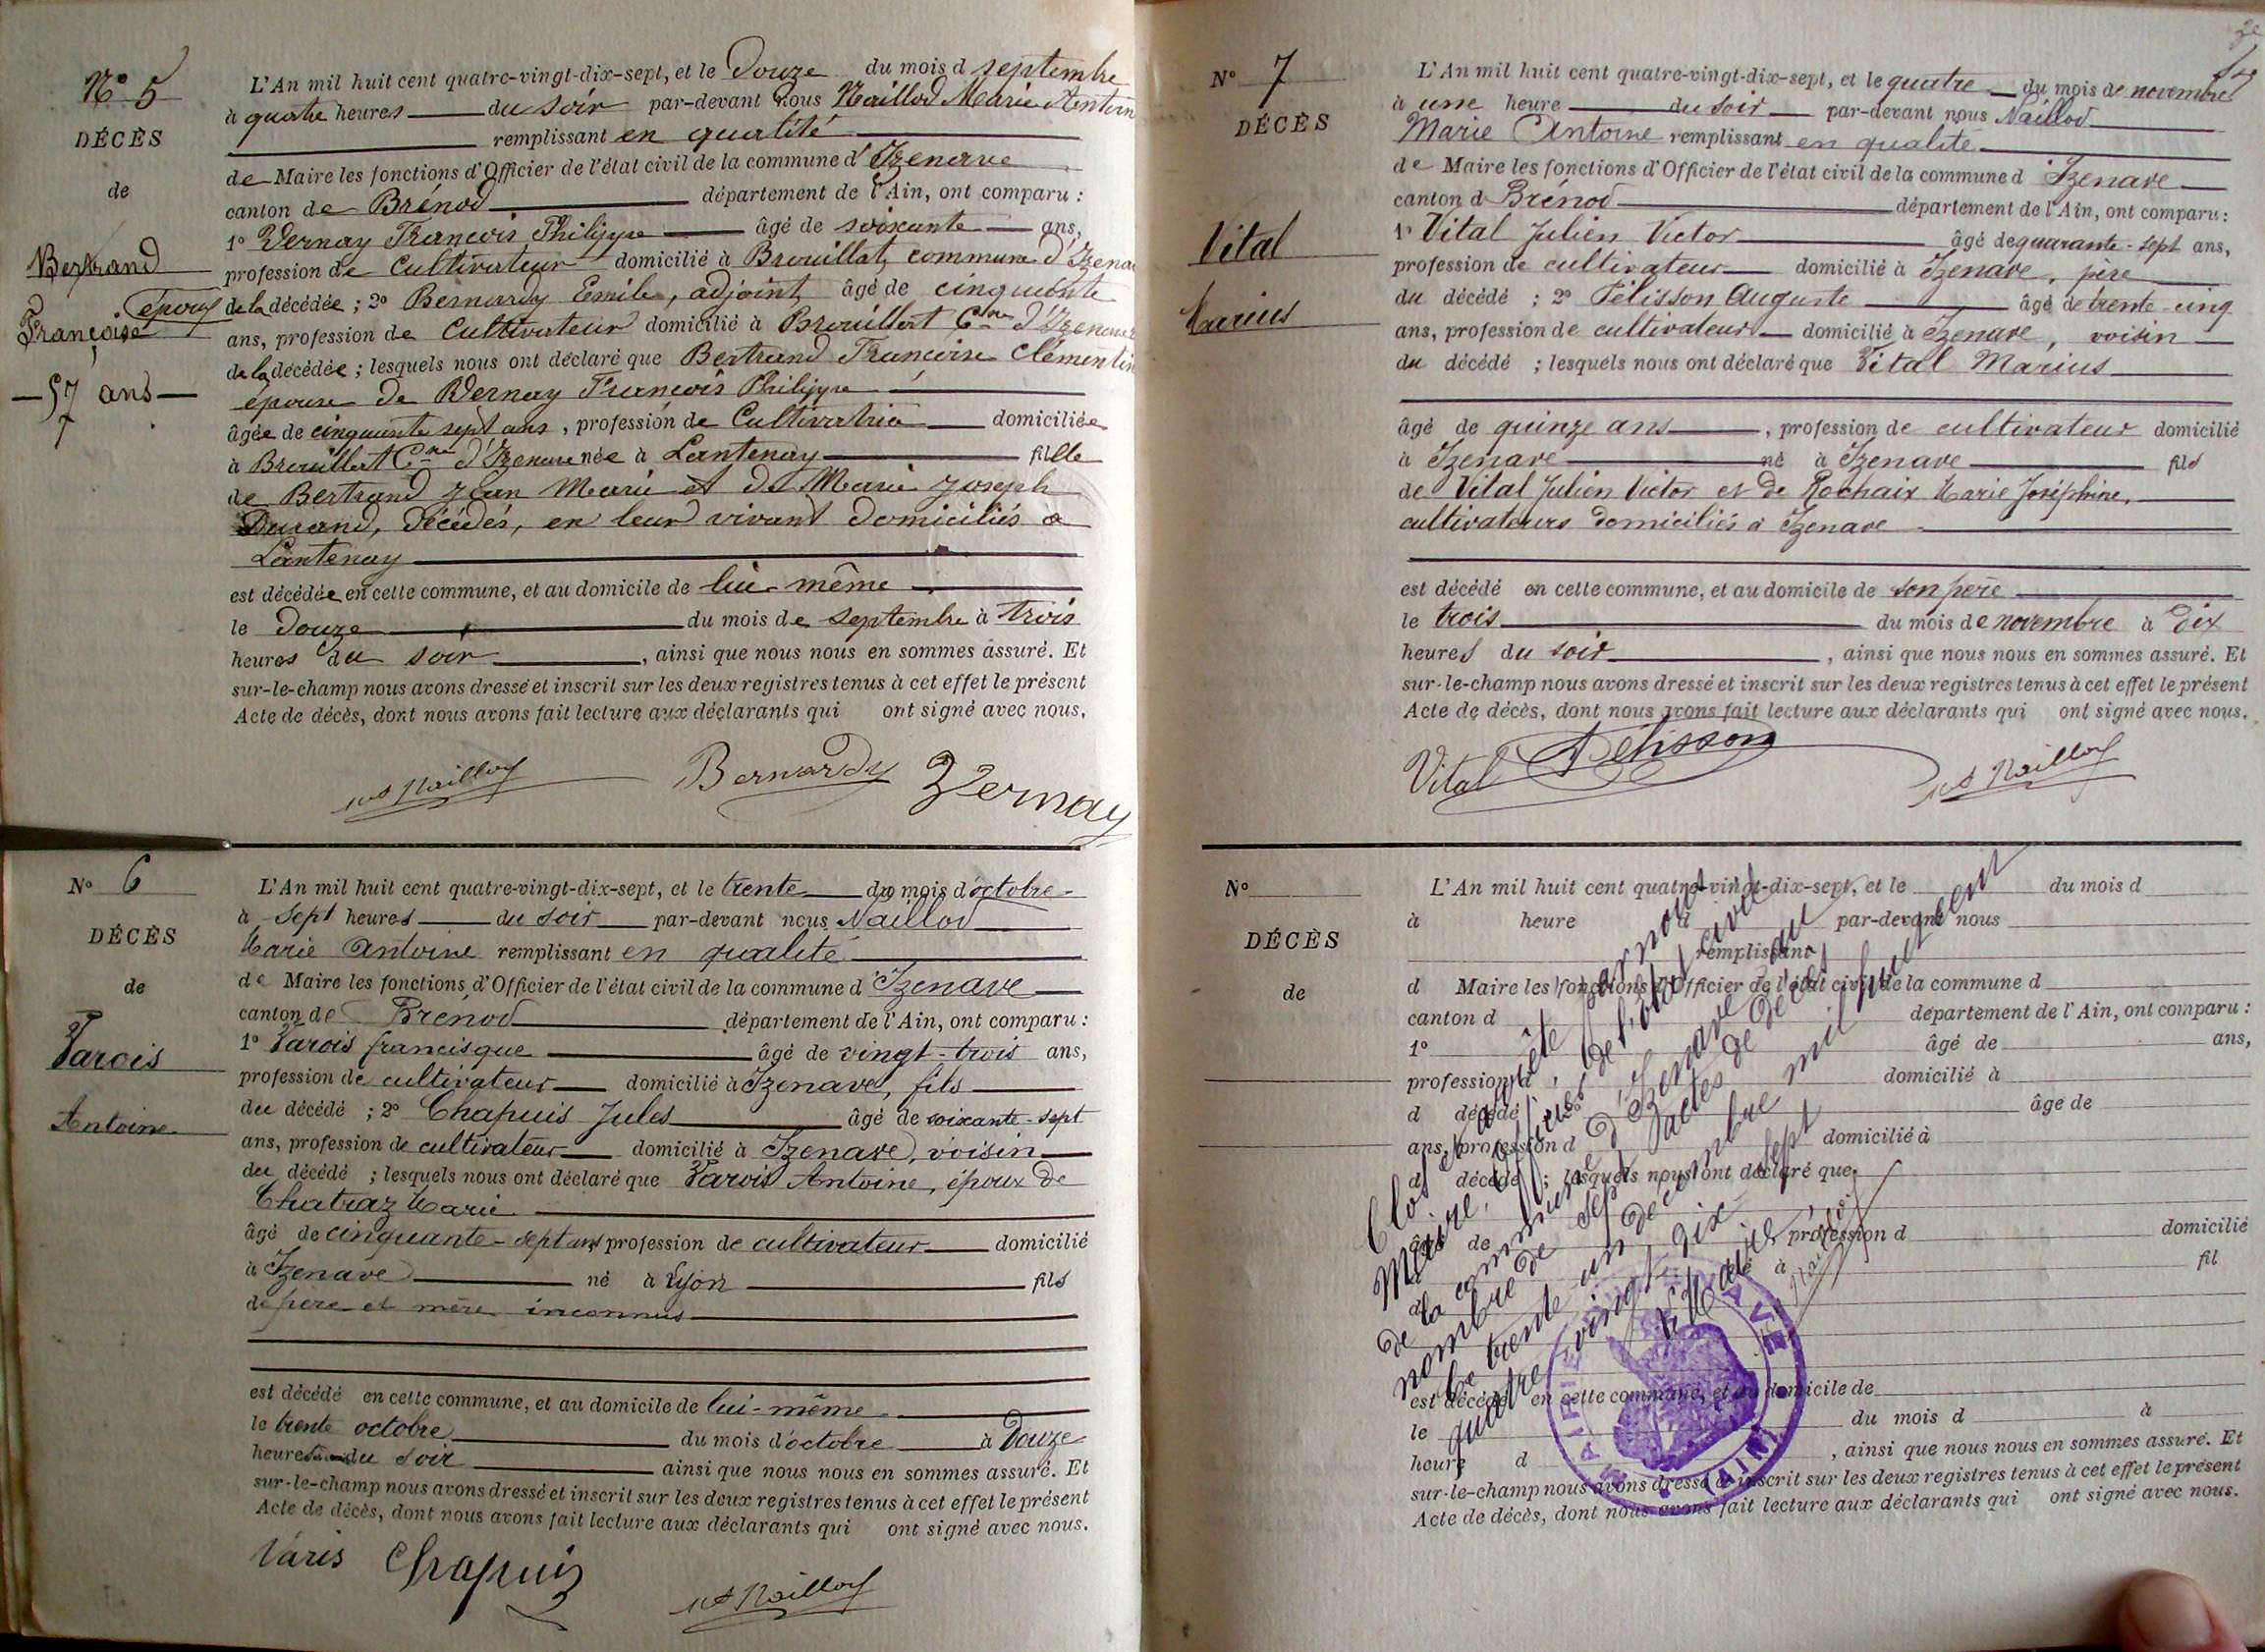 N° 5
DÉCÈS
de
Bertrand
épouse
Françoise
57 ans
L'An mil huit cent quatre-vingt-dix-sept, et le Douze du mois d septembre
à quatre heures du soir par-devant nous Naillod Marie Antoin
remplissant en qualité
de Maire les fonctions d'Officier de l'état civil de la commune d'Izenave
canton de Brénod département de l'Ain, ont comparu :
1° Vernay François Philippe âgé de soixante ans,
profession de Cultivateur domicilié à Brouillat, commune d'Izena
de la décédée ; 2° Bernardy Emile, adjoint, âgé de cinquante
ans, profession de Cultivateur domicilié à Brouillat Cne d'Izenave
de la décédée ; lesquels nous ont déclaré que Bertrand Françoise Clémentin
épouse de Vernay François Philippe
âgée de cinquante sept ans, profession de Cultivatrice domiciliée
à Brouillat Cne d'Izenave née à Lantenay fille
de Bertrand Jean Marie et de Marie Joseph
Durand, décédés, en leur vivant domiciliés à
Lantenay
est décédée en cette commune, et au domicile de lui-même
le Douze du mois de septembre à trois
heures du soir, ainsi que nous nous en sommes assuré. Et
sur-le-champ nous avons dressé et inscrit sur les deux registres tenus à cet effet le présent
Acte de décès, dont nous avons fait lecture aux déclarants qui ont signé avec nous.
Naillod Bernardy Vernay
N° 6
DÉCÈS
de
Varois
Antoine
L'An mil huit cent quatre-vingt-dix-sept, et le trente du mois d'octobre
à sept heures du soir par-devant nous Naillod
Marie Antoine remplissant en qualité
de Maire les fonctions d'Officier de l'état civil de la commune d'Izenave
canton de Brénod département de l'Ain, ont comparu :
1° Varois francisque âgé de vingt-trois ans,
profession de cultivateur domicilié à Izenave, fils
du décédé ; 2° Chapuis Jules âgé de soixante-sept
ans, profession de cultivateur domicilié à Izenave, voisin
du décédé ; lesquels nous ont déclaré que Varois Antoine, époux de
Chatraz Marie
âgé de cinquante-sept ans profession de cultivateur domicilié
à Izenave né à Lyon fils
de père et mère inconnus
est décédé en cette commune, et au domicile de lui-même
le trente octobre du mois d'octobre à Douze
heures du soir ainsi que nous nous en sommes assuré. Et
sur-le-champ nous avons dressé et inscrit sur les deux registres tenus à cet effet le présent
Acte de décès, dont nous avons fait lecture aux déclarants qui ont signé avec nous.
Varis Chapuis Naillod
N° 7
DÉCÈS
Vital
Marius
L'An mil huit cent quatre-vingt-dix-sept, et le quatre du mois de novembre
à une heure du soir par-devant nous Naillod
Marie Antoine remplissant en qualité
de Maire les fonctions d'Officier de l'état civil de la commune d'Izenave
canton d Brénod département de l'Ain, ont comparu :
1° Vital Julien Victor âgé de quarante-sept ans,
profession de cultivateur domicilié à Izenave, père
du décédé ; 2° Pélisson Auguste âgé de trente-cinq
ans, profession de cultivateur domicilié à Izenave, voisin
du décédé ; lesquels nous ont déclaré que Vital Marius
âgé de quinze ans, profession de cultivateur domicilié
à Izenave né à Izenave fils
de Vital Julien Victor et de Rochaix Marie Joséphine,
cultivateurs domiciliés à Izenave
est décédé en cette commune, et au domicile de son père
le trois du mois de novembre à Dix
heures du soir, ainsi que nous nous en sommes assuré. Et
sur-le-champ nous avons dressé et inscrit sur les deux registres tenus à cet effet le présent
Acte de décès, dont nous avons fait lecture aux déclarants qui ont signé avec nous.
Vital Pélisson Naillod
N°
DÉCÈS
de
L'An mil huit cent quatre-vingt-dix-sept, et le du mois d
à heure d par-devant nous
remplissant
d Maire les fonctions d'Officier de l'état civil de la commune d
canton d département de l'Ain, ont comparu :
1° âgé de ans,
profession d domicilié à
d décédé âge de
ans, profession d domicilié à
d décédé ; lesquels nous ont déclaré que
âgé de , profession d domicilié
à né à fil
est décédé en cette commune, et au domicile de
le du mois d à
heure d , ainsi que nous nous en sommes assuré. Et
sur-le-champ nous avons dressé et inscrit sur les deux registres tenus à cet effet le présent
Acte de décès, dont nous avons fait lecture aux déclarants qui ont signé avec nous.
Clos et arrêté par nous
Maire, officier de l'état civil
de la commune d'Izenave au
nombre de sept actes de décès
le trente un décembre mil huit cent
quatre vingt dix sept
Le Maire
Naillod
MAIRIE D'IZENAVE
(AIN)